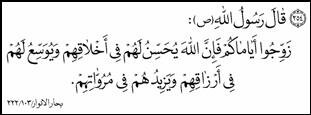 ۲۵۴ قَالَ رَسُولُ اللّٰهِ (ص):
زَوِّجُوا أَيَامَاكُمْ فَإِنَّ اللّٰهَ يُحَسِّنُ لَهُمْ فِي أَخْلَاقِهِمْ وَيُوَسِّعُ لَهُمْ
فِي أَرْزَاقِهِمْ وَيَزِيدُهُمْ فِي مُرُوَّاتِهِمْ.
بحارالانوار: ۲۲۲/۱۰۳